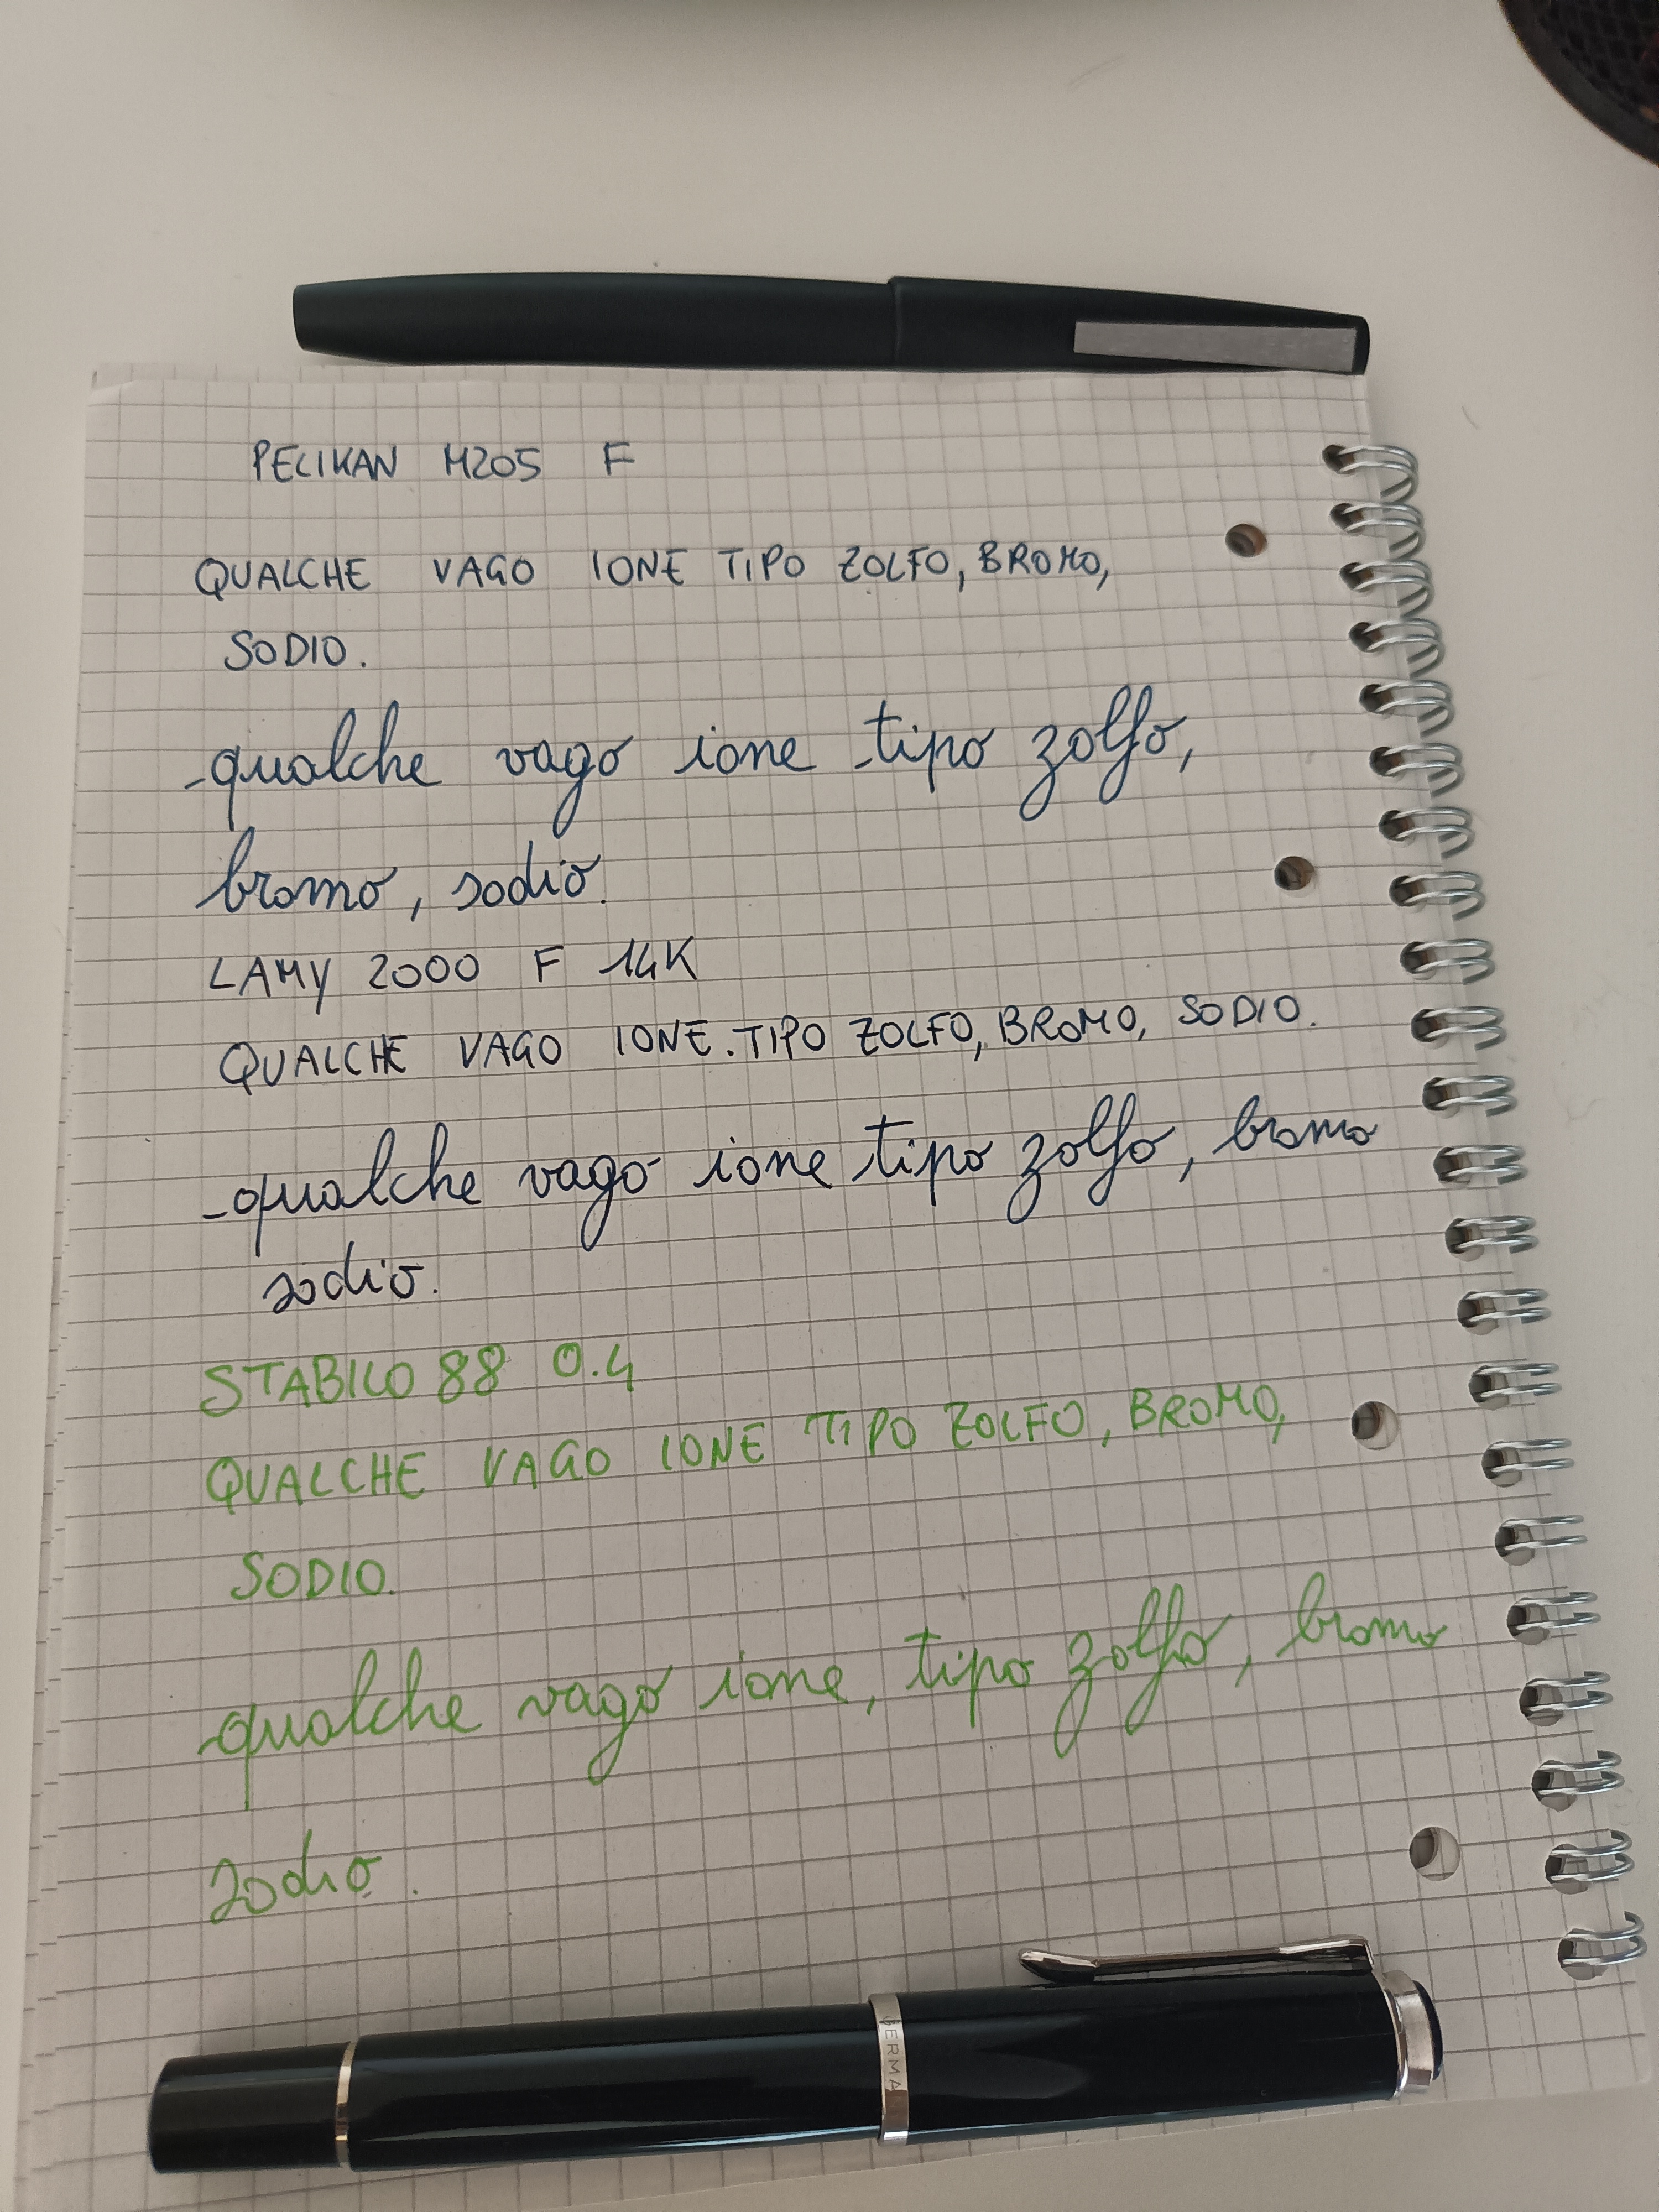 PELIKAN M205 F
QUALCHE VAGO IONE TIPO ZOLFO, BROMO,
SODIO.
qualche vago ione tipo zolfo,
bromo, sodio.
LAMY 2000 F 14K
QUALCHE VAGO IONE. TIPO ZOLFO, BROMO, SODIO.
qualche vago ione tipo zolfo, bromo
sodio.
STABILO 88 0.4
QUALCHE VAGO IONE TIPO ZOLFO, BROMO,
SODIO.
qualche vago ione, tipo zolfo, bromo
sodio.
GERMA